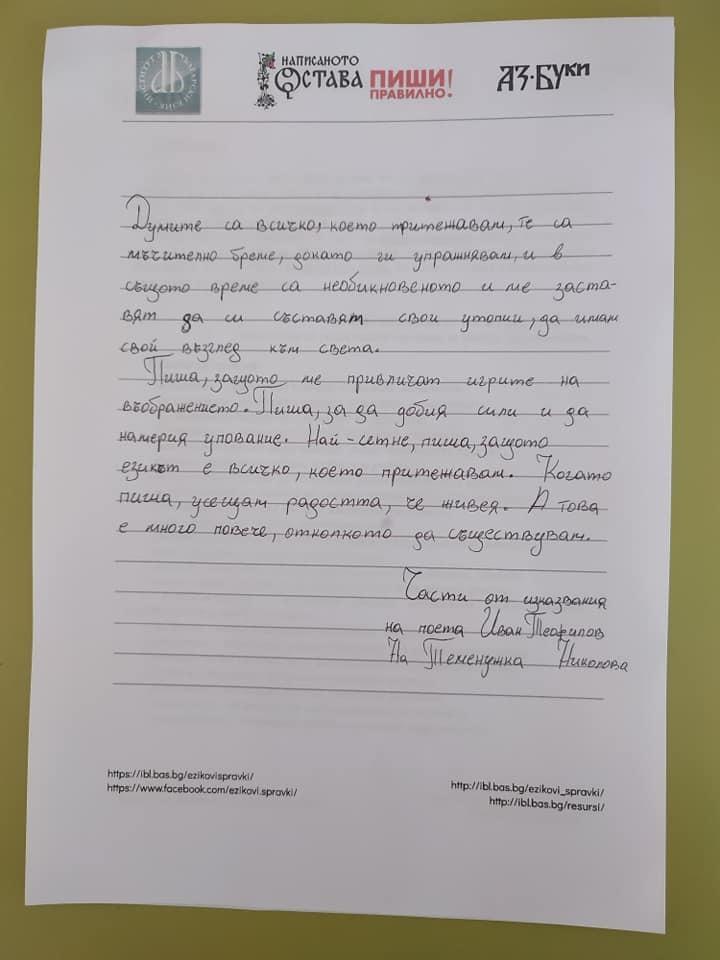 ИНСТИТУТ ЗА БЪЛГАРСКИ ЕЗИК
НАПИСАНОТО
ОСТАВА
ПИШИ
ПРАВИЛНО!
АЗ·БУКИ
Думите са всичко, което притежавам, те са
мъчително бреме, докато ги упражнявам, и в
същото време са необикновеното и ме заста-
вят да си съставят свои утопии, да имам
свой възглед към света.
Пиша, защото ме привличат игрите на
въображението. Пиша, за да добия сили и да
намеря упование. Най-сетне, пиша, защото
езикът е всичко, което притежавам. Когато
пиша, усещам радостта, че живея. А това
е много повече, отколкото да съществувам.
Части от изказвания
на поета Иван Теофилов
На Теменужка Николова
https://ibl.bas.bg/ezikovispravki/
https://www.facebook.com/ezikovi.spravki/
http://ibl.bas.bg/ezikovi_spravki/
http://ibl.bas.bg/resursi/